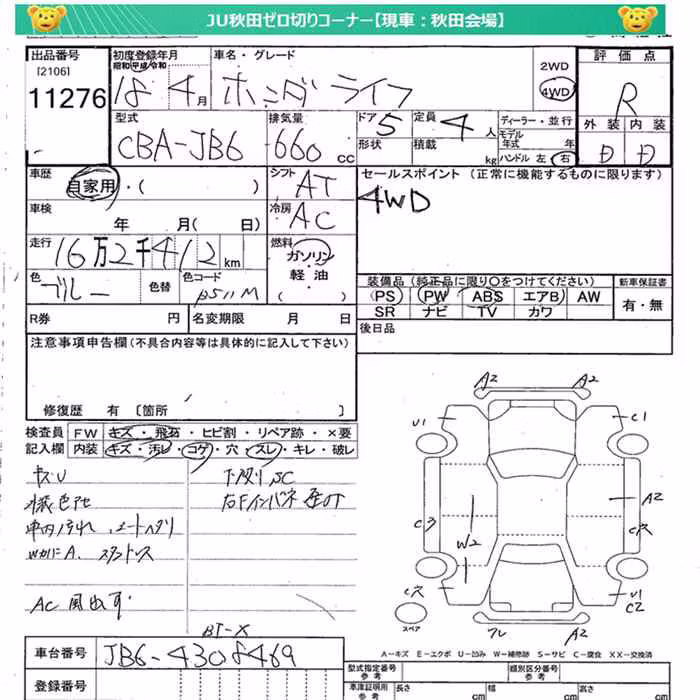 JU秋田ゼロ切りコーナー【現車：秋田会場】
出品番号
[2106]
11276
初度登録年月
昭和 平成 令和
18 4月
車名・グレード
ホンダ ライフ
2WD
4WD
評価点
R
外装 内装
D D
型式
CBA-JB6
排気量
660 CC
ドア 5
形状
定員 4 人
積載 kg
ディーラー・並行
モデル
年式 年
ハンドル 左 右
車歴
自家用・( )
シフト
AT
セールスポイント (正常に機能するものに限ります)
4WD
車検
年 月( 日)
冷房
AC
走行
16万2千412 km
燃料
ガソリン
軽・油
( )
色
ブルー
色替
色コード
B511M
装備品 (純正品に限り○をつけてください)
新車保証書
PS PW ABS エアB AW
有・無
SR ナビ TV カワ
R券 円
名変期限 月 日
後日品
注意事項申告欄(不具合内容等は具体的に記入して下さい)
修復歴 有 [箇所 ]
検査員
記入欄
FW キズ・飛石・ヒビ割・リペア跡・×要
内装 キズ・汚レ・コゲ・穴・スレ・キレ・破レ
キズU
下廻りSC
車内汚れ
AC 風出ず
BT-X
A2 A2
U1 C1
A2
W2
C穴
C穴
U1
C2
A2
スペア
A－キズ E－エクボ U－凹み W－補修跡 S－サビ C－腐食 XX－交換済
車台番号
JB6-4308469
登録番号
型式指定番号
参考
類別区分番号
参考
車体証明用
参考
長さ cm
幅 cm
高さ cm